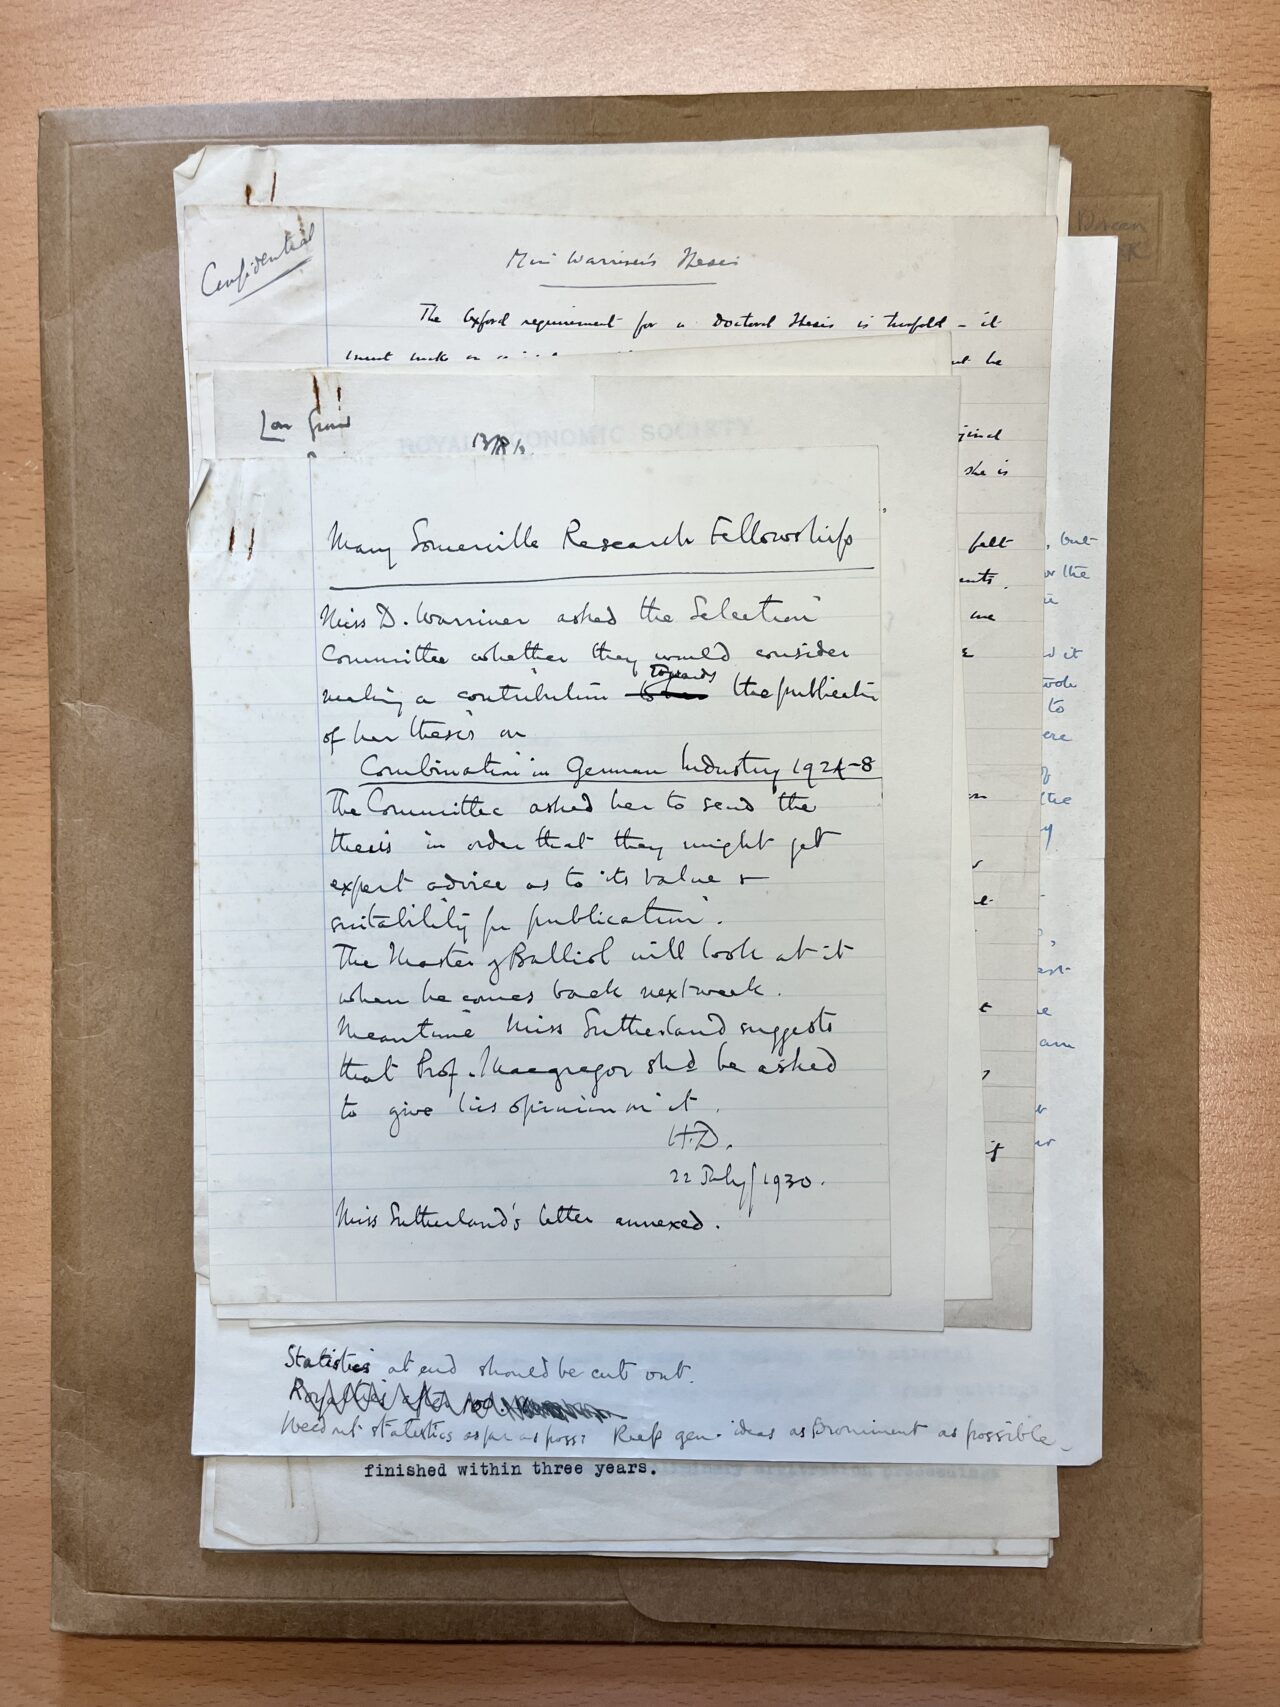 Doreen
Confidential
Miss Warriner's Thesis
The Oxford requirement for a Doctoral Thesis is twofold – it
must
be
ROYAL ECONOMIC SOCIETY
she is
felt
, but
or the
me
to
ere
the
am
Mary Somerville Research Fellowships
Miss D. Warriner asked the Selection
Committee whether they would consider
towards
making a contribution the publication
of her thesis on
Combination in German Industry 1924-8
The Committee asked her to send the
thesis in order that they might get
expert advice as to its value &
suitability for publication.
The Master of Balliol will look at it
when he comes back next week.
Meantime Miss Sutherland suggests
that Prof. Macgregor shd be asked
to give his opinion on it.
H.D.
22 July/1930.
Miss Sutherland's letter annexed.
Statistics at end should be cut out.
Weed out statistics as far as poss: Keep gen. ideas as prominent as possible
finished within three years.